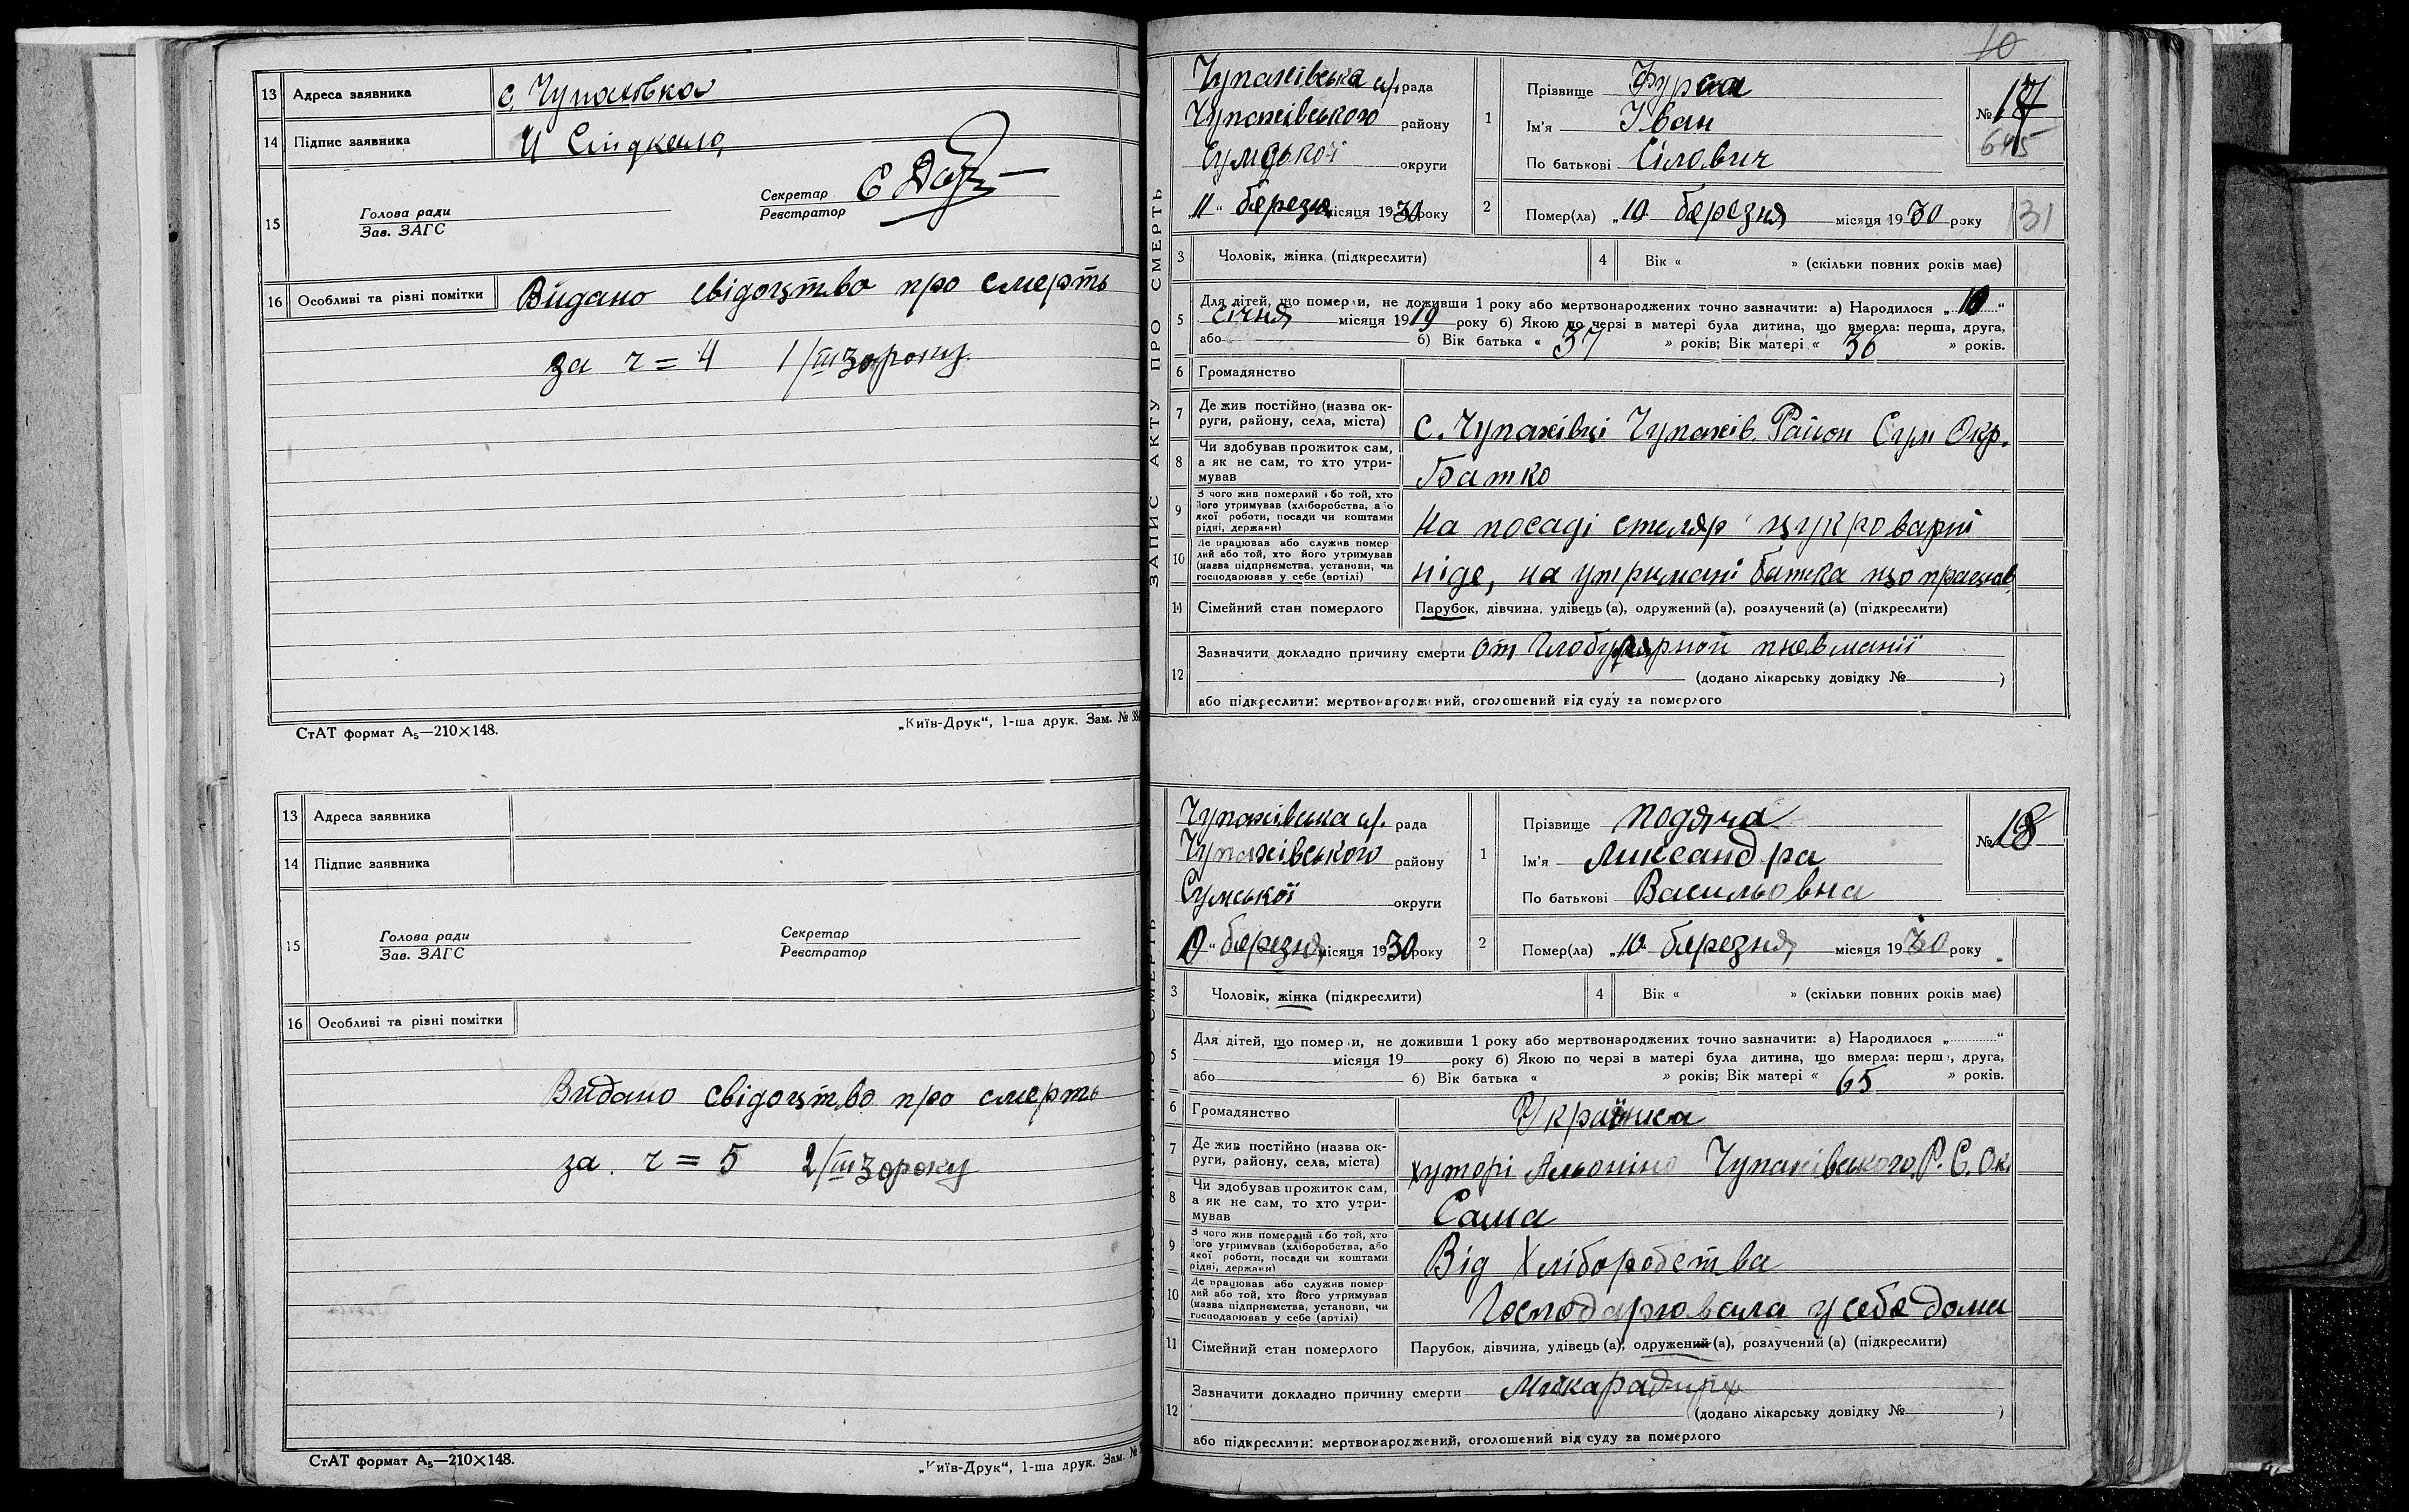 13 Адреса заявника с. Чупаховка
14 Підпис заявника
15 Голова ради
Зав. ЗАГС
Секретар
Реєстратор
16 Особливі та різні помітки Видано свідоцтво про смерть
за ч = 4 1/III 30 року
СтАТ формат А₅—210×148.
„Київ-Друк“, 1-ша друк. Зам. №
13 Адреса заявника
14 Підпис заявника
15 Голова ради
Зав. ЗАГС
Секретар
Реєстратор
16 Особливі та різні помітки
Видано свідоцтво про смерть
за ч = 5 2/III 30 року
СтАТ формат А₅—210×148.
„Київ-Друк“, 1-ша друк. Зам. №
10
ЗАПИС АКТУ ПРО СМЕРТЬ
Чупахівська с/. рада
Чупахівського району
Сумської округи
„11“ березня місяця 1930 року
1 Прізвище Фурса
Ім'я Іван
По батькові Сілович
№ 17
645
2 Помер(ла) „10 березня місяця 1930 року
131
3 Чоловік, жінка (підкреслити)
4 Вік « » (скільки повних років має)
5 Для дітей, що померли, не доживши 1 року або мертвонароджених точно зазначити: а) Народилося „10“
січня місяця 1919 року б) Якою по черзі в матері була дитина, що вмерла: перша, друга,
або б) Вік батька « 37 » років; Вік матері « 36 » років.
6 Громадянство
7 Де жив постійно (назва ок-
руги, району, села, міста) с. Чупахівці Чупахів. Район Сум Окр.
8 Чи здобував прожиток сам,
а як не сам, то хто утри-
мував Батко
9 З чого жив померлий або той, хто
його утримував (хліборобства, або
якої роботи, посади чи коштами
рідні, держави) на посаді столяр цукроварні
10 Де працював або служив помер-
лий або той, хто його утримував
(назва підприємства, установи, чи
господарював у себе (артілі) ніде, на утримані батька що працював
11 Сімейний стан померлого Парубок, дівчина, удівець (а), одружений (а), розлучений (а) (підкреслити)
12 Зазначити докладно причину смерти от пневманії
(додано лікарську довідку № )
або підкреслити: мертвонароджений, оголошений від суду за померлого
Чупахівська с/. рада
Чупахівського району
Сумської округи
“ березня місяця 1930 року
1 Прізвище Подяча
Ім'я Александра
По батькові Васильовна
№ 18
2 Помер(ла) „10 березня місяця 1930 року
3 Чоловік, жінка (підкреслити)
4 Вік « » (скільки повних років має)
5 Для дітей, що померли, не доживши 1 року або мертвонароджених точно зазначити: а) Народилося „ “
місяця 19 року б) Якою по черзі в матері була дитина, що вмерла: перша, друга,
або б) Вік батька « » років; Вік матері « 65 » років.
6 Громадянство Українка
7 Де жив постійно (назва ок-
руги, району, села, міста) хуторі Чупахівського Р. С. Ок.
8 Чи здобував прожиток сам,
а як не сам, то хто утри-
мував Сама
9 З чого жив померлий або той, хто
його утримував (хліборобства, або
якої роботи, посади чи коштами
рідні, держави) Від Хліборобства
10 Де працював або служив помер-
лий або той, хто його утримував
(назва підприємства, установи, чи
господарював у себе (артілі) Господарювала у себе дома
11 Сімейний стан померлого Парубок, дівчина, удівець (а), одружений (а), розлучений (а) (підкреслити)
12 Зазначити докладно причину смерти
(додано лікарську довідку № )
або підкреслити: мертвонароджений, оголошений від суду за померлого